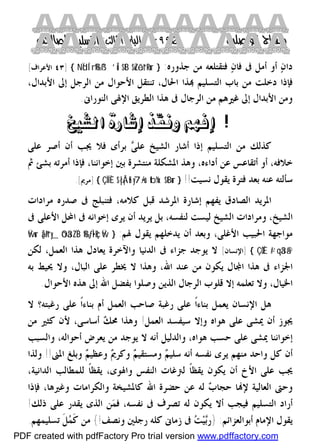 دانٍ أو أمل فى فانٍ فتقتلعه من جذوره
[٤٣ الأعراف]
فإذا دخلت من باب التسليم بهذا الحال، تنتقل الأحوال من الرجل إلى الأبدال،
ومن الأبدال إلى غيرهم من الرجال فى هذا الطريق الإلهى النورانى
إِفْهَمِ ونَفِّذْ إشَارَةَ الشَّيخ !
كذلك من التسليم إذا أشار الشيخ علىَّ برأى فلا يجب أن أصر على
خلافه، أو أتقاعس عن أداءه، وهذ المشكلة منتشرة بين إخواننا، فإذا أمرته بشئ ثم
سألته عنه بعد فترة يقول نسيت!
[مريم]
المريد الصادق يفهم إشارة المرشد قبل كلامه، فتنبلج فى صدره مرادات
الشيخ، ومرادات الشيخ ليست لنفسه، بل يريد أن يرى إخوانه فى المحل الأعلى فى
مواجهة الحبيب الأغلى، وبعد أن يدخلهم يقول لهم:
[الإنسان] لا يوجد جزاء فى الدنيا والآخرة يعادل هذا العمل، لكن
الجزاء فى هذا المجال يكون من عند الله، وهذا لا يخطر على البال، ولا يحيط به
الخيال، ولا تعلمه إلا قلوب الرجال الذين وصلوا بفضل الله إلى هذه الأحوال
هل الإنسان يعمل بناءاً على رغبة صاحب العمل أم بناءاً على رغبته؟ لا
يجوز أن يمشى على هواه وإلا سيفسد العمل! وهذا محكٌ أساسى، لأن كثير من
إخواننا يمشى على حسب هواه، والدليل أنه لا يوجد من يعرض أحواله، والسبب
أن كل واحد منهم يرى نفسه أنه سليمٌ ومستقيمٌ وكريمٌ وعظيمٌ وبلغ المنى!! ولذا
يجب على الأخ أن يكون يقظاً لنزغات النفس والهوى، يقظاً للمطالب الدانية،
وحتى العالية لأنها حجابٌ له عن حضرة الله كالمشيخة والكرامات وغيرها، فإذا
أراد التسليم فيجب ألا يكون له تصرف فى نفسه، فمَن الذى يقدر على ذلك!
يقول الإمام أبوالعزائم: {{رَبَّيْتُ فى زمانى كله رجلين ونصف}} من كَمُلَ تسليمهم
PDF created with pdfFactory Pro trial version www.pdffactory.com